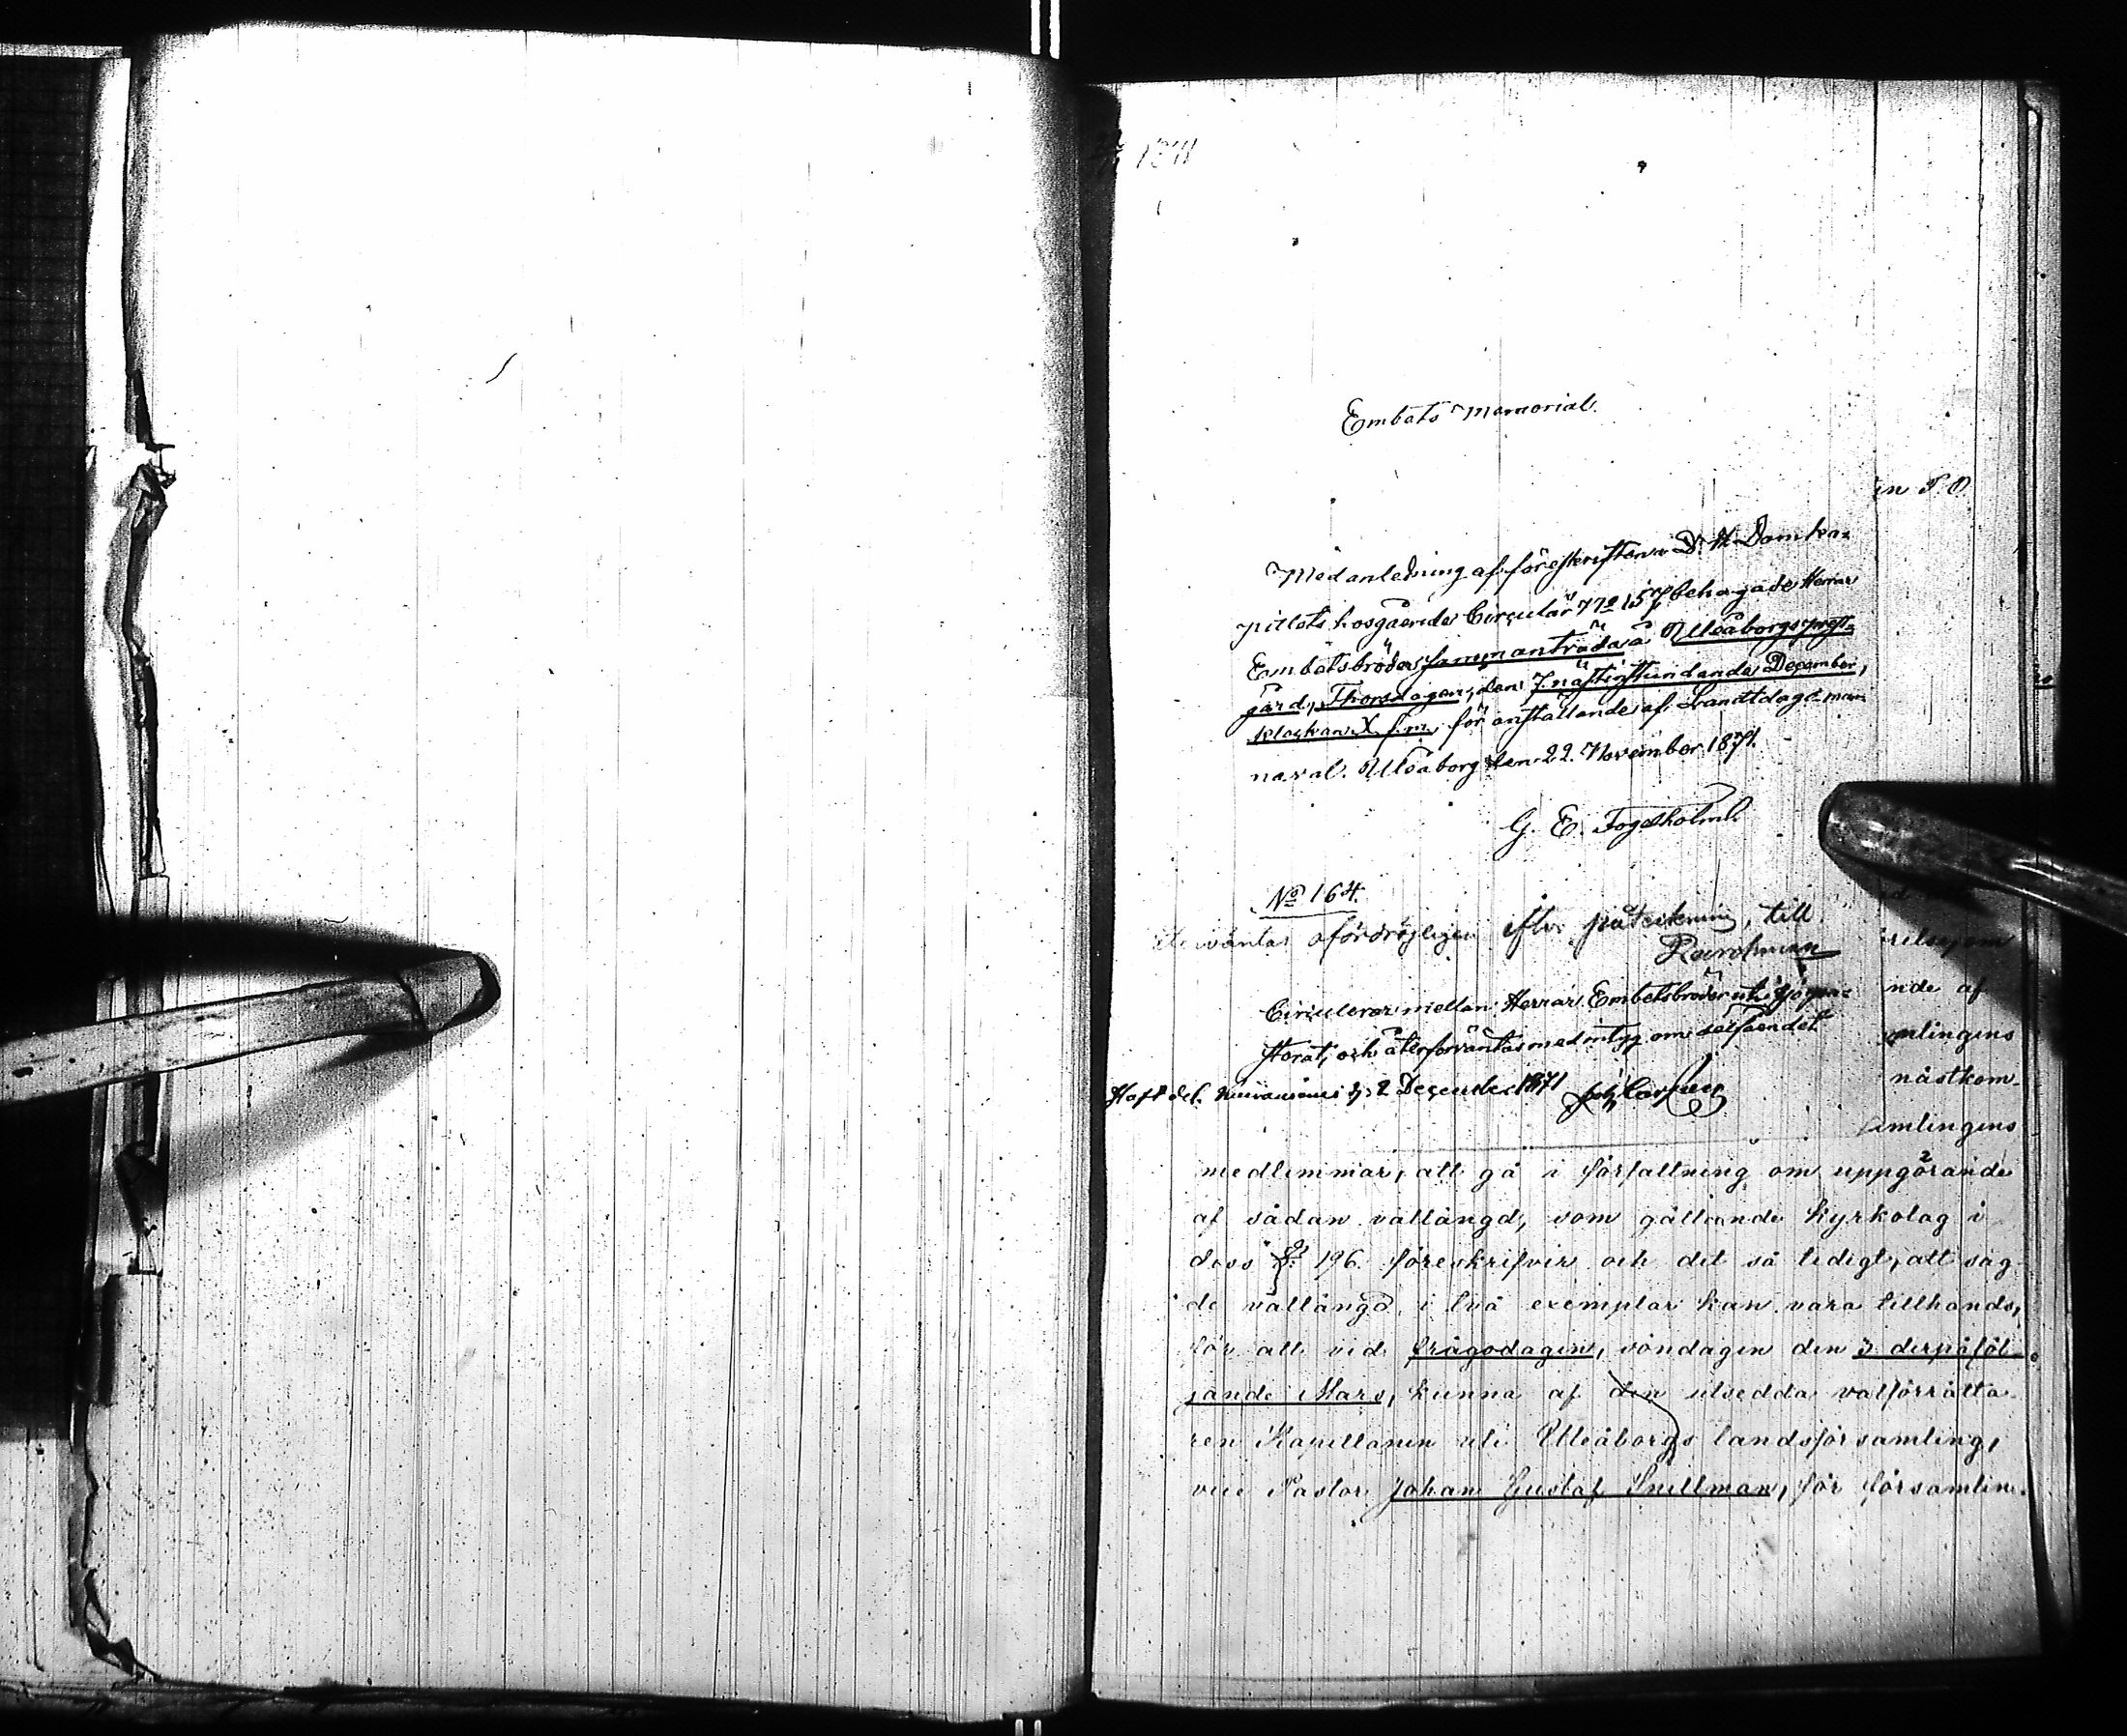 1871
Embets Memorial.
in T. O
Med anledning af föreskriften i D. H. Domka-
pitlets hosgående Circulär No 157 behagade Herrar
Embetsbröder sammanträda å Uleåborgs prest-
gård, Thorsdagen, den 7 nästinstundande December,
klockan X f.m. för anställande af Landtdagsman-
naval. Uleåborg den 22. November 1871.
G. E. Fogelholm
No 164.
återväntas ofördröjligen efter påteckning, till
Circulerar mellan Herrar Embetsbröder uti
storat, och återförväntas med intyg om
nde af
mlingens
Haft del. 2 December 1871
nästkom-
amlingens
medlemmar, att gå i författning om uppgörande
af sådan vallängd, som gällande kyrkolag i
dess §. 196. föreskrifver och det så tidigt, att sag-
de vallängd i två exemplar kan vara tillhands,
för att vid frågodagen, söndagen den 3 derpåföl-
jande Mars, kunna af den utsedda valförrätta-
ren Kapellanen uti Uleåborgs landsförsamling,
vice Pastor Johan Gustaf Snellman, för församlin-